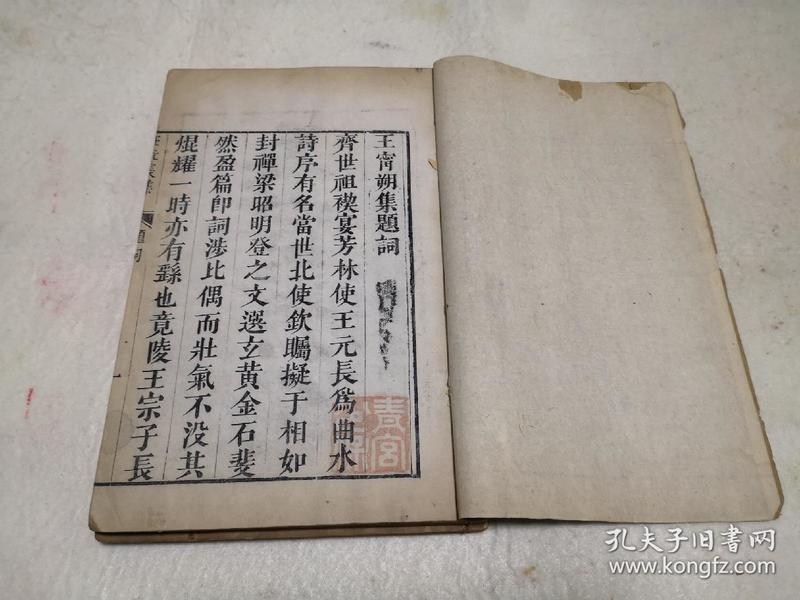 王甯朔集題詞
齊世祖禊宴芳林使王元長爲曲水
詩序有名當世北使欽矚擬于相如
封禪梁昭明登之文選玄黃金石斐
然盈篇卽詞涉比偶而壯氣不没其
焜耀一時亦有繇也竟陵王宗子長
題詞
一
青宮
孔夫子旧書网
www.kongfz.com